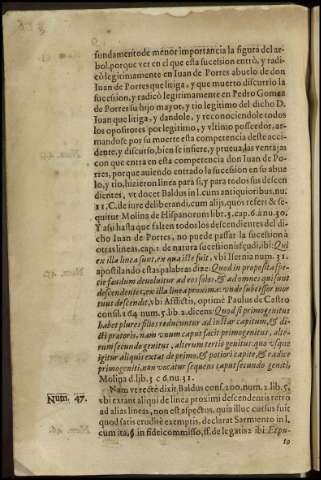 fundamento de menor importancia la figura del ar-
bol, porque ver en el que esta sucession entrò, y radi-
cò legitimamente en Iuan de Porres abuelo de don
Iuan de Porres que litiga, y que muerto discurrio la
sucession, y radicò legitimamente en Pedro Gomez
de Porres su hijo mayor, y tio legitimo del dicho D.
Iuan que litiga, y dandole, y reconociendole todos
los opositores por legitimo, y vltimo posseedor, ar-
mandose por su muerte esta competencia deste acci-
dente, y discurso, bien se infiere, y prueua, las ventajas
con que entra en esta competencia don Iuan de Po-
rres, porque auiendo entrado la sucession en su abue
lo, y tio, hizieron linea para si, y para todos sus descen
dientes, vt docet Baldus in l. cum antiquioribus, nu.
11. C. de iure deliberandi, cum alijs, quos refert & se-
quitur Molina de Hispanorum lib. 3. cap. 6. à nu. 30.
Y assi hasta que falten todos los descendientes del di-
cho Iuan de Porres, no puede passar la sucession à
otras lineas, cap. 1. de natura successionis feudi, ibi: Qui
ex illa linea sunt, ex qua iste fuit, vbi Isernia num. 31.
apostilando estas palabras dize: Quod in proposita spe-
cie faudum deuoluitur ad eos solos, & ad omnes qui sunt
descendentes, ex illa linea proxima: vnde subcessor mor
tuus descendet, vbi Afflictis, optimè Paulus de Castro
consil. 164 num. 5. lib. 2. dicens: Quod si primogenitus
habet plures filios reducuntur ad instar capitum, & di-
cti pratoris, nam vnum caput facit primogenitus, alte-
rum secundo genitus, alterum tertio genitus: quo vsque
igitur aliquis extat de primo, & potiori capite, & radice
primogeniti, non vocatur sequens caput secundo geniti,
Molina d. lib. 3 c 6. nu. 31.
Num. 47. Nam vt rectè dixit, Baldus cons. 200. num. 2 lib. 5,
vbi extant aliqui de linea proximi descendentis retro
ad alias lineas, non est aspectus, quia illuc cursus fuit
quod satis eruditè exemptis, declarat Sarmiento in l.
cum ita, §. in fideicommisso, ff. de legatis 2 ibi: Expu-